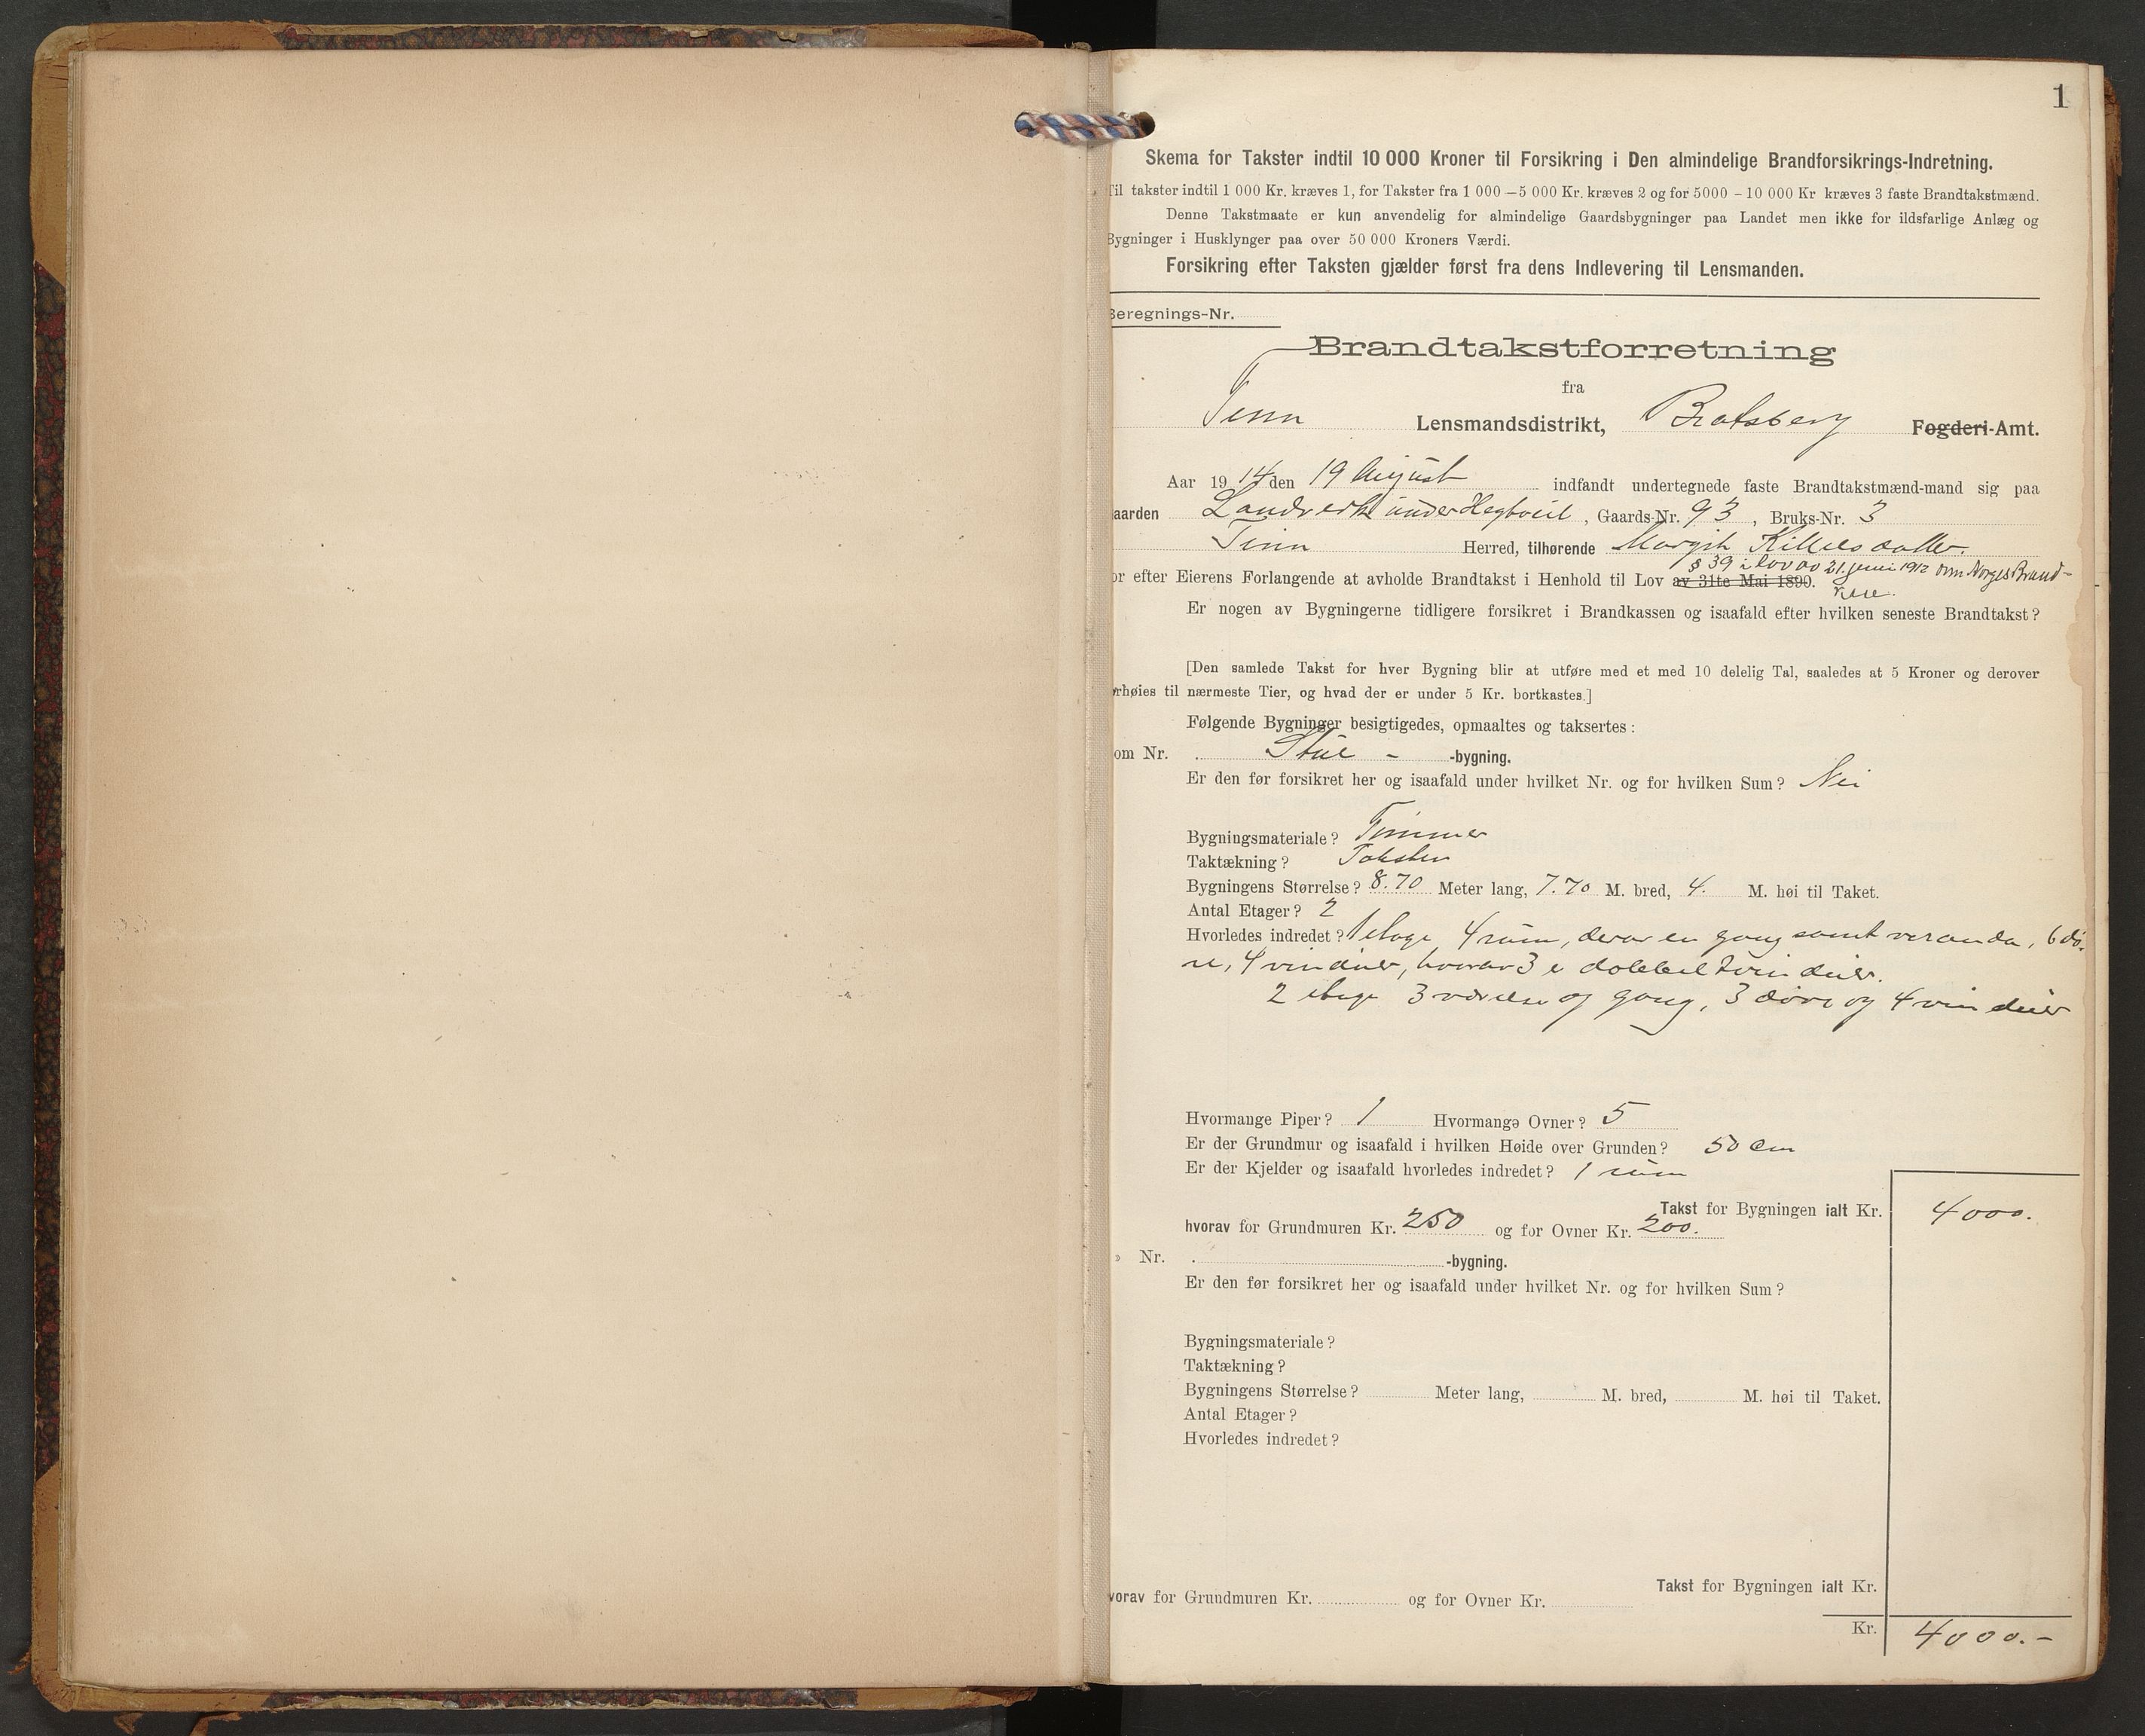 1
Skema for Takster indtil 10 000 Kroner til Forsikring i Den almindelige Brandforsikrings-Indretning.
Til takster indtil 1 000 Kr. kræves 1, for Takster fra 1 000 – 5 000 Kr. kræves 2 og for 5000 – 10 000 Kr kræves 3 faste Brandtakstmænd.
Denne Takstmaate er kun anvendelig for almindelige Gaardsbygninger paa Landet men ikke for ildsfarlige Anlæg og
Bygninger i Husklynger paa over 50 000 Kroners Værdi.
Forsikring efter Taksten gjælder først fra dens Indlevering til Lensmanden.
Beregnings-Nr.
Brandtakstforretning
fra
Tinn Lensmandsdistrikt, Bratsberg Fogderi-Amt.
Aar 1914 den 19 August indfandt undertegnede faste Brandtakstmænd-mand sig paa
aarden Landverk under , Gaards-Nr. 93, Bruks-Nr. 3
Tinn Herred, tilhørende Margit Kittilsdatter.
§ 39 i lov av 21. juni 1912 om Norges Brand-
or efter Eierens Forlangende at avholde Brandtakst i Henhold til Lov av 31te Mai 1890.
Er nogen av Bygningerne tidligere forsikret i Brandkassen og isaafald efter hvilken seneste Brandtakst?
[Den samlede Takst for hver Bygning blir at utføre med et med 10 delelig Tal, saaledes at 5 Kroner og derover
rhøies til nærmeste Tier, og hvad der er under 5 Kr. bortkastes.]
Følgende Bygninger besigtigedes, opmaaltes og taksertes:
om Nr. . Stue - -bygning.
Er den før forsikret her og isaafald under hvilket Nr. og for hvilken Sum? Nei
Bygningsmateriale? Tømmer
Taktækning? Taksten
Bygningens Størrelse? 8.70 Meter lang, 7.70 M. bred, 4. M. høi til Taket.
Antal Etager? 2
Hvorledes indredet? 1 etage 4 rum, derav en gang samt veranda, 6 dø-
re, 4 vinduer, hvorav 3 e dobbelt vinduer.
2 etage 3 værelse og gang, 3 døre og 4 vinduer
Hvormange Piper? 1 Hvormange Ovner? 5
Er der Grundmur og isaafald i hvilken Høide over Grunden? 50 cm
Er der Kjelder og isaafald hvorledes indredet? 1 rum
Takst for Bygningen ialt Kr. 4000.
hvorav for Grundmuren Kr. 250 og for Ovner Kr. 200.
» Nr. . -bygning.
Er den før forsikret her og isaafald under hvilket Nr. og for hvilken Sum?
Bygningsmateriale?
Taktækning?
Bygningens Størrelse? Meter lang, M. bred, M. høi til Taket.
Antal Etager?
Hvorledes indredet?
Takst for Bygningen ialt Kr.
vorav for Grundmuren Kr. og for Ovner Kr.
Kr. 4000.-